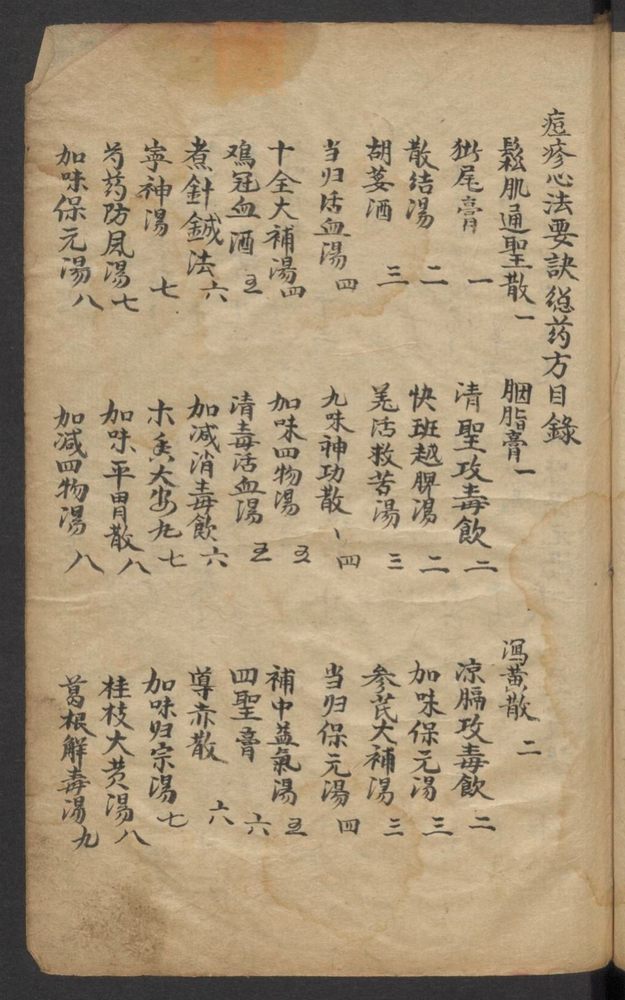 痘疹心法要訣總药方目錄
鬆肌通聖散一 胭脂膏一 瀉黄散二
猘尾膏一 清聖攻毒飲二 凉膈攻毒飲二
散结湯二 快班越脾湯二 加味保元湯三
胡荽酒三 羌活救苦湯三 参芪大補湯三
当归活血湯四 九味神功散四 当归保元湯四
十全大補湯四 加味四物湯五 補中益氣湯五
鴪冠血酒五 清毒活血湯五 四聖膏六
煮針鍼法六 加减消毒飲六 導赤散六
寧神湯七 木香大安丸七 加味归宗湯七
芍药防風湯七 加味平胃散八 桂枝大黄湯八
加味保元湯八 加减四物湯八 葛根解毒湯九